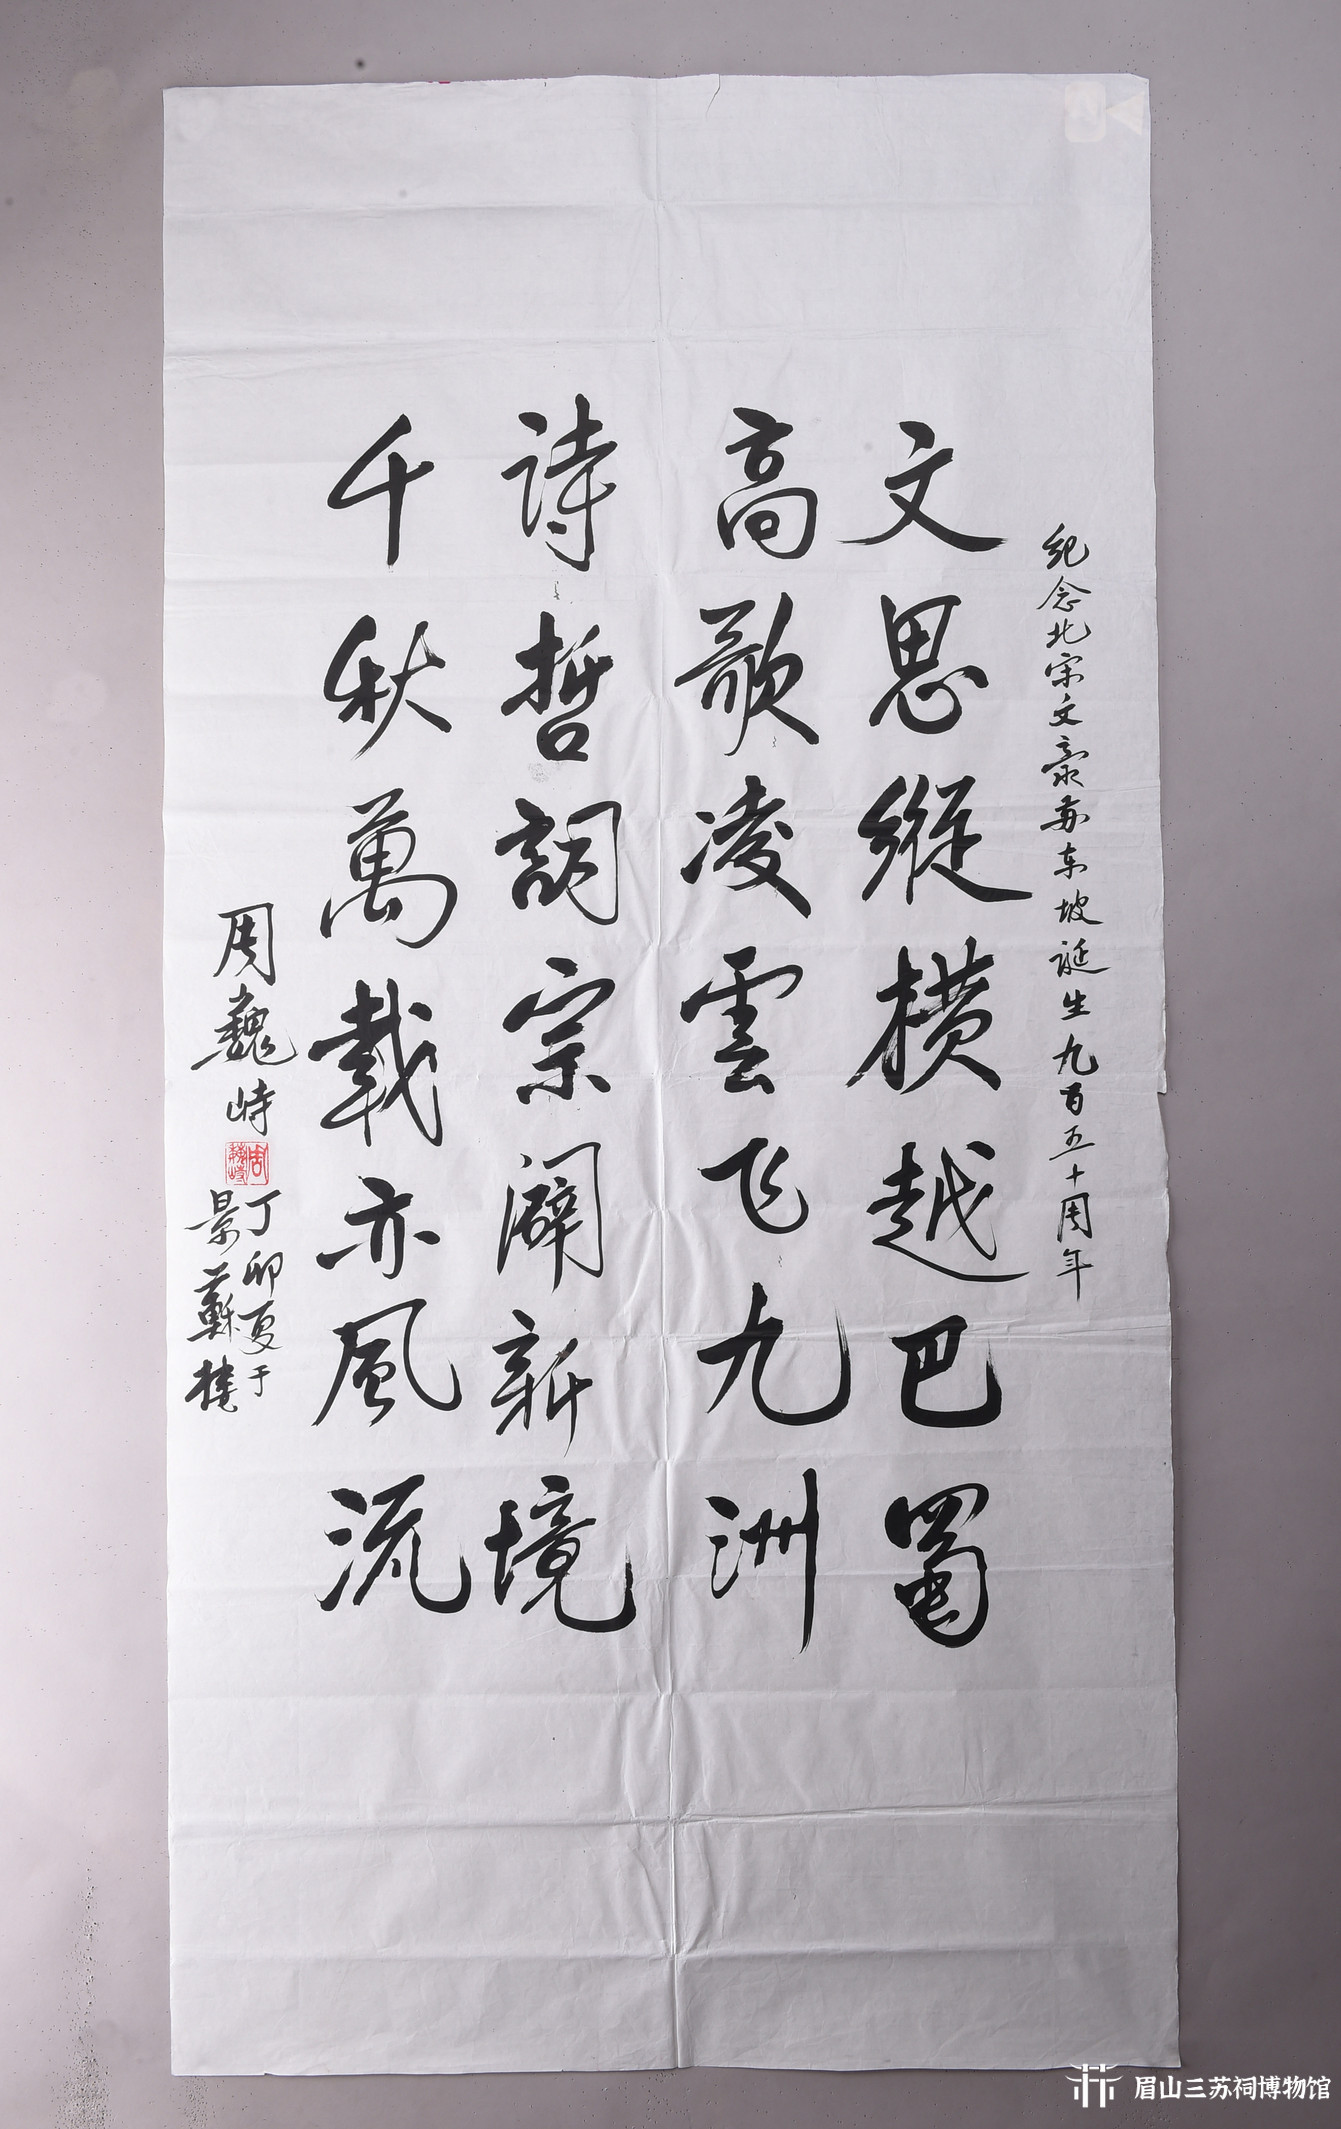 纪念北宋文豪苏东坡诞生九百五十周年
文思縱横越巴蜀
高歌凌雲飞九洲
诗哲詞宗闢新境
千秋萬載亦風流
周巍峙
周巍峙
丁卯夏于
景蘇楼
眉山三苏祠博物馆